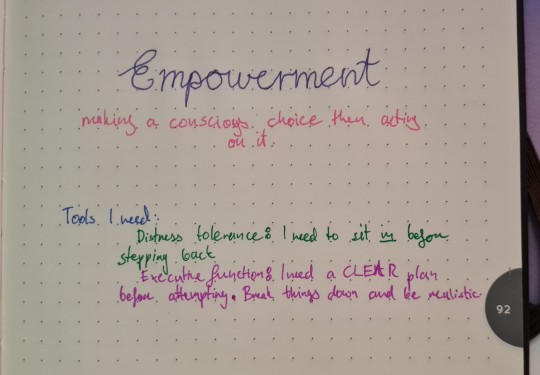 Empowerment
making a conscious choice then acting
on it.
Tools I need:
Distress tolerance: I need to sit in before
stepping back
Executive function: I need a CLEAR plan
before attempting. Break things down and be realistic
92